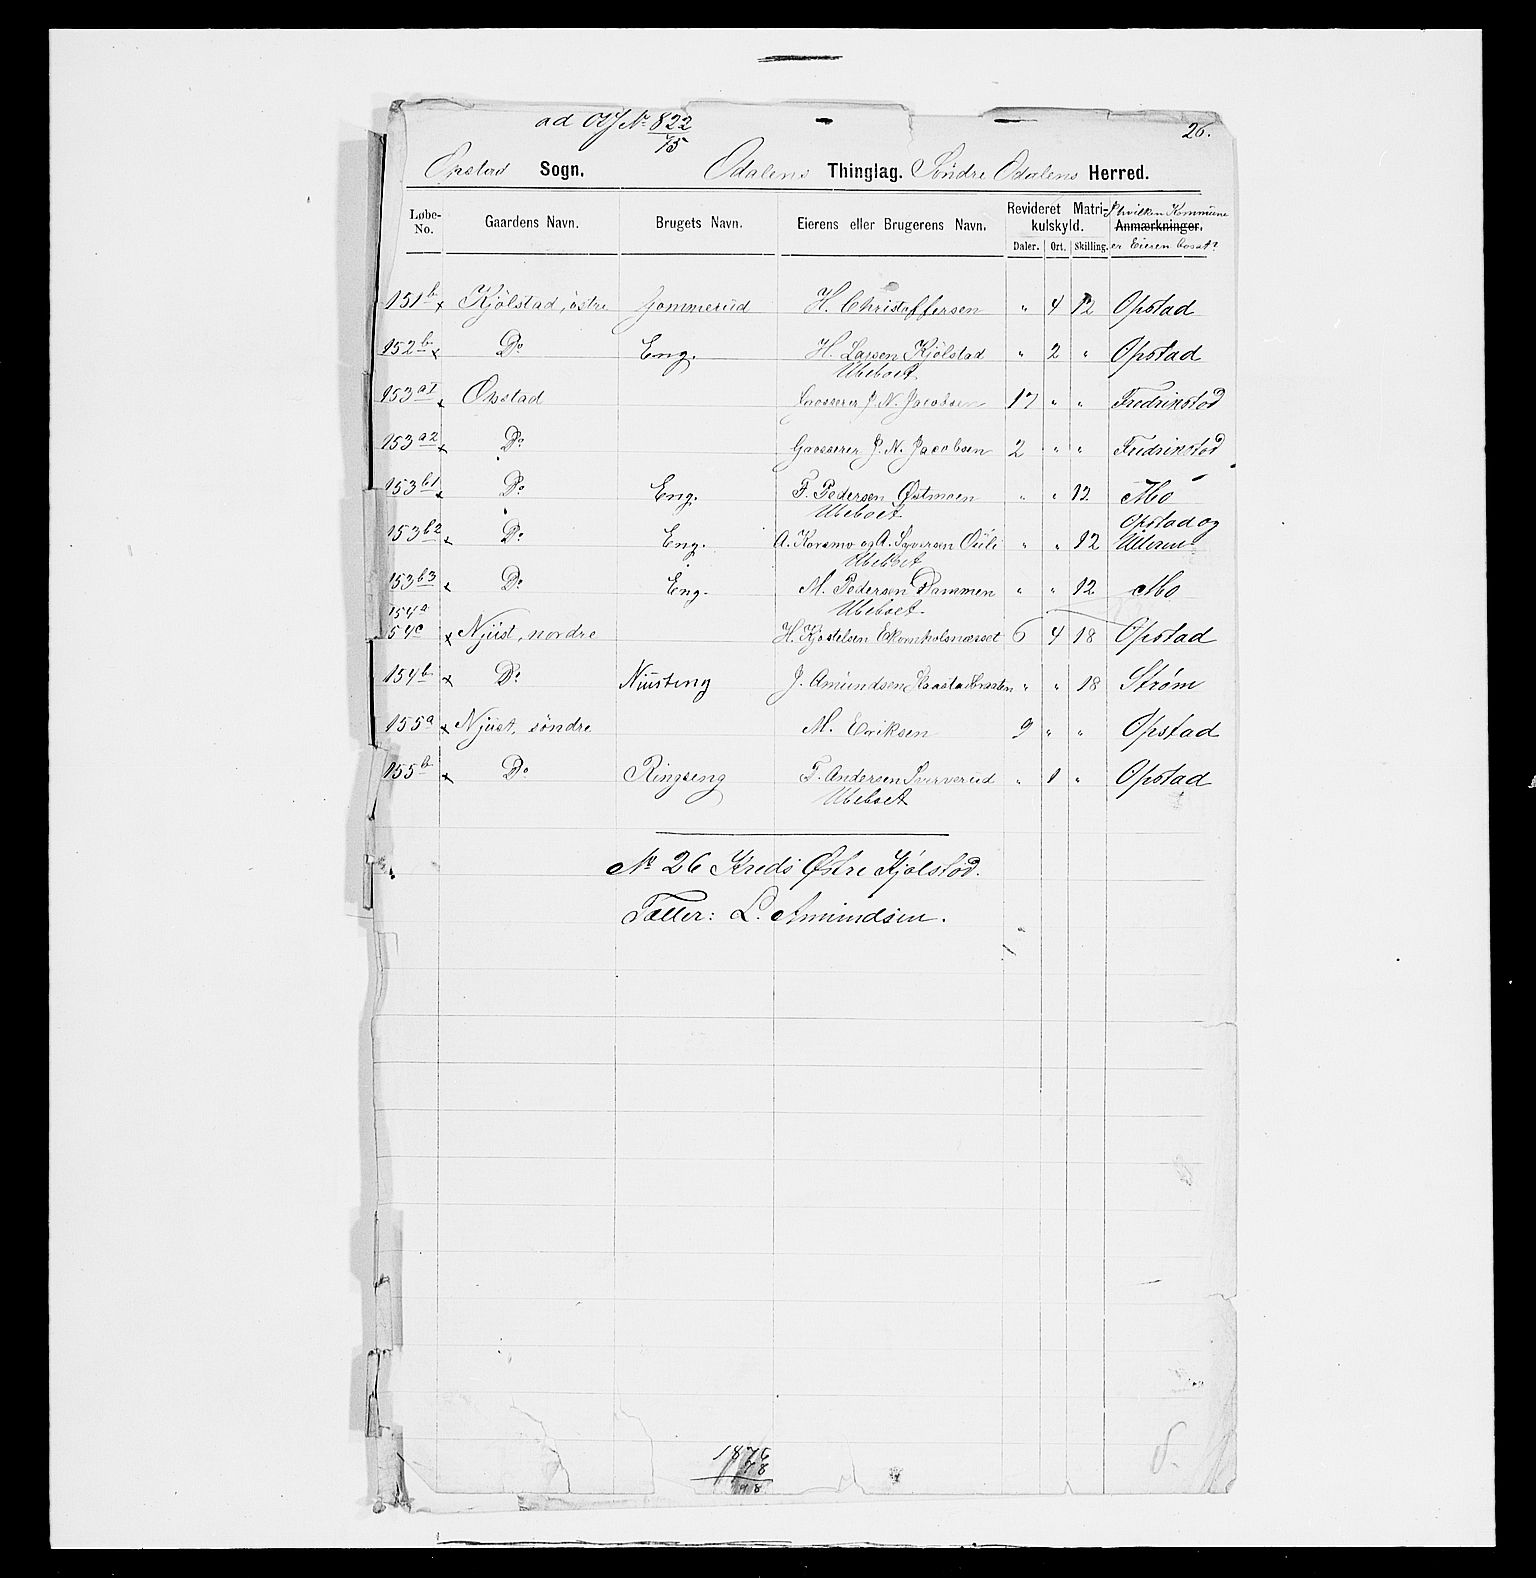 ad No 822
75
26.
Opstad Sogn. Odalens Thinglag. Søndre Odalens Herred.
Løbe-No. Gaardens Navn. Brugets Navn. Eierens eller Brugerens Navn. Revideret Matrikulskyld. Daler. Ort. Skilling. Anmærkninger. I hvilken Kommune er Eieren bosat?
151b x Kjölstad, östre Jommerud H. Christoffersen " 4 12 Opstad
152b x Do Eng. H. Larsen Kjölstad " 2 " Opstad
Ubeboet
153a1 x Opstad Grosserer J. N. Jacobsen 17 " " Fredrikstad
153a2 x Do Grosserer J. N. Jacobsen 2 " " Fredrikstad
153b1 x Do Eng. F. Pedersen Østmoen " " 12 Mo
Ubeboet
153b2 x Do Eng. A. Korsmo og A. Syversen " " 12 Opstad og Ullern
Ubeboet
153b3 x Do Eng. M. Pedersen Dammen " " 12 Mo
Ubeboet.
154a
54c x Njust, nordre H. Kjostelsen 6 4 18 Opstad
154b x Do Niusteng J. Amundsen " " 18 Strøm
155a x Njust, söndre M. Eriksen 9 " " Opstad
155b x Do Ringseng T. Andersen " 1 " Opstad
Ubeboet
No 26 Kreds Østre Kjölstad.
Tæller: L. Amundsen.
1876
78
98